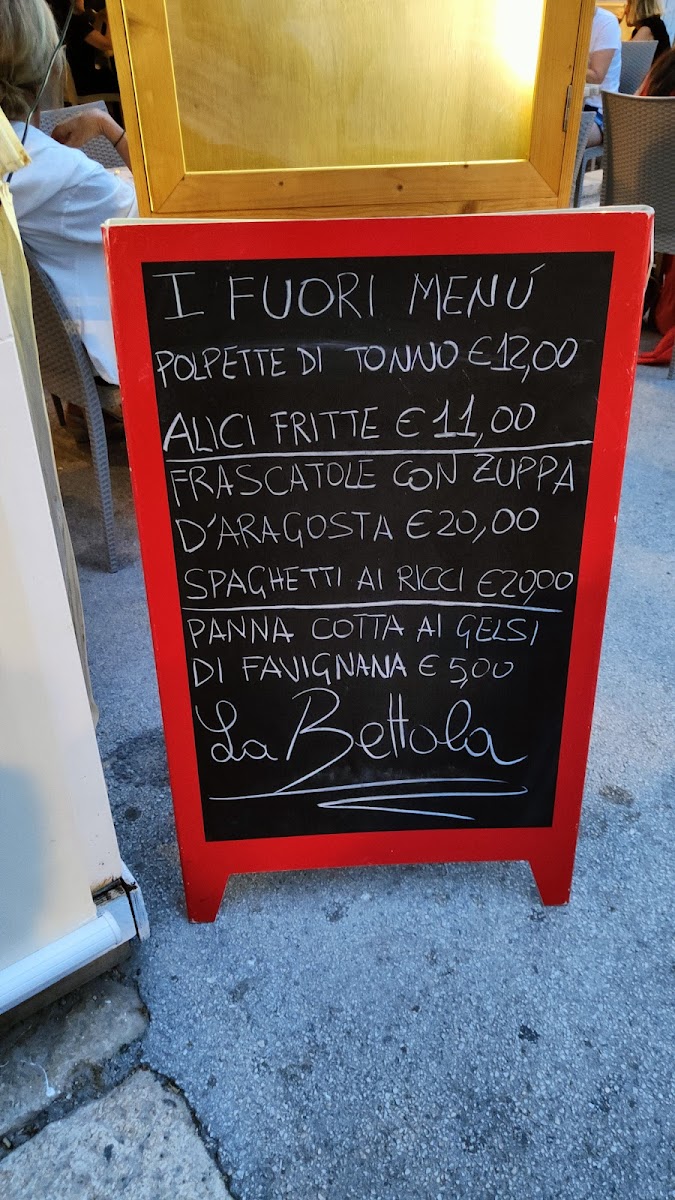 I FUORI MENÚ
POLPETTE DI TONNO €12,00
ALICI FRITTE €11,00
FRASCATOLE CON ZUPPA
D'ARAGOSTA €20,00
SPAGHETTI AI RICCI €20,00
PANNA COTTA AI GELSI
DI FAVIGNANA €5,00
La Bettola